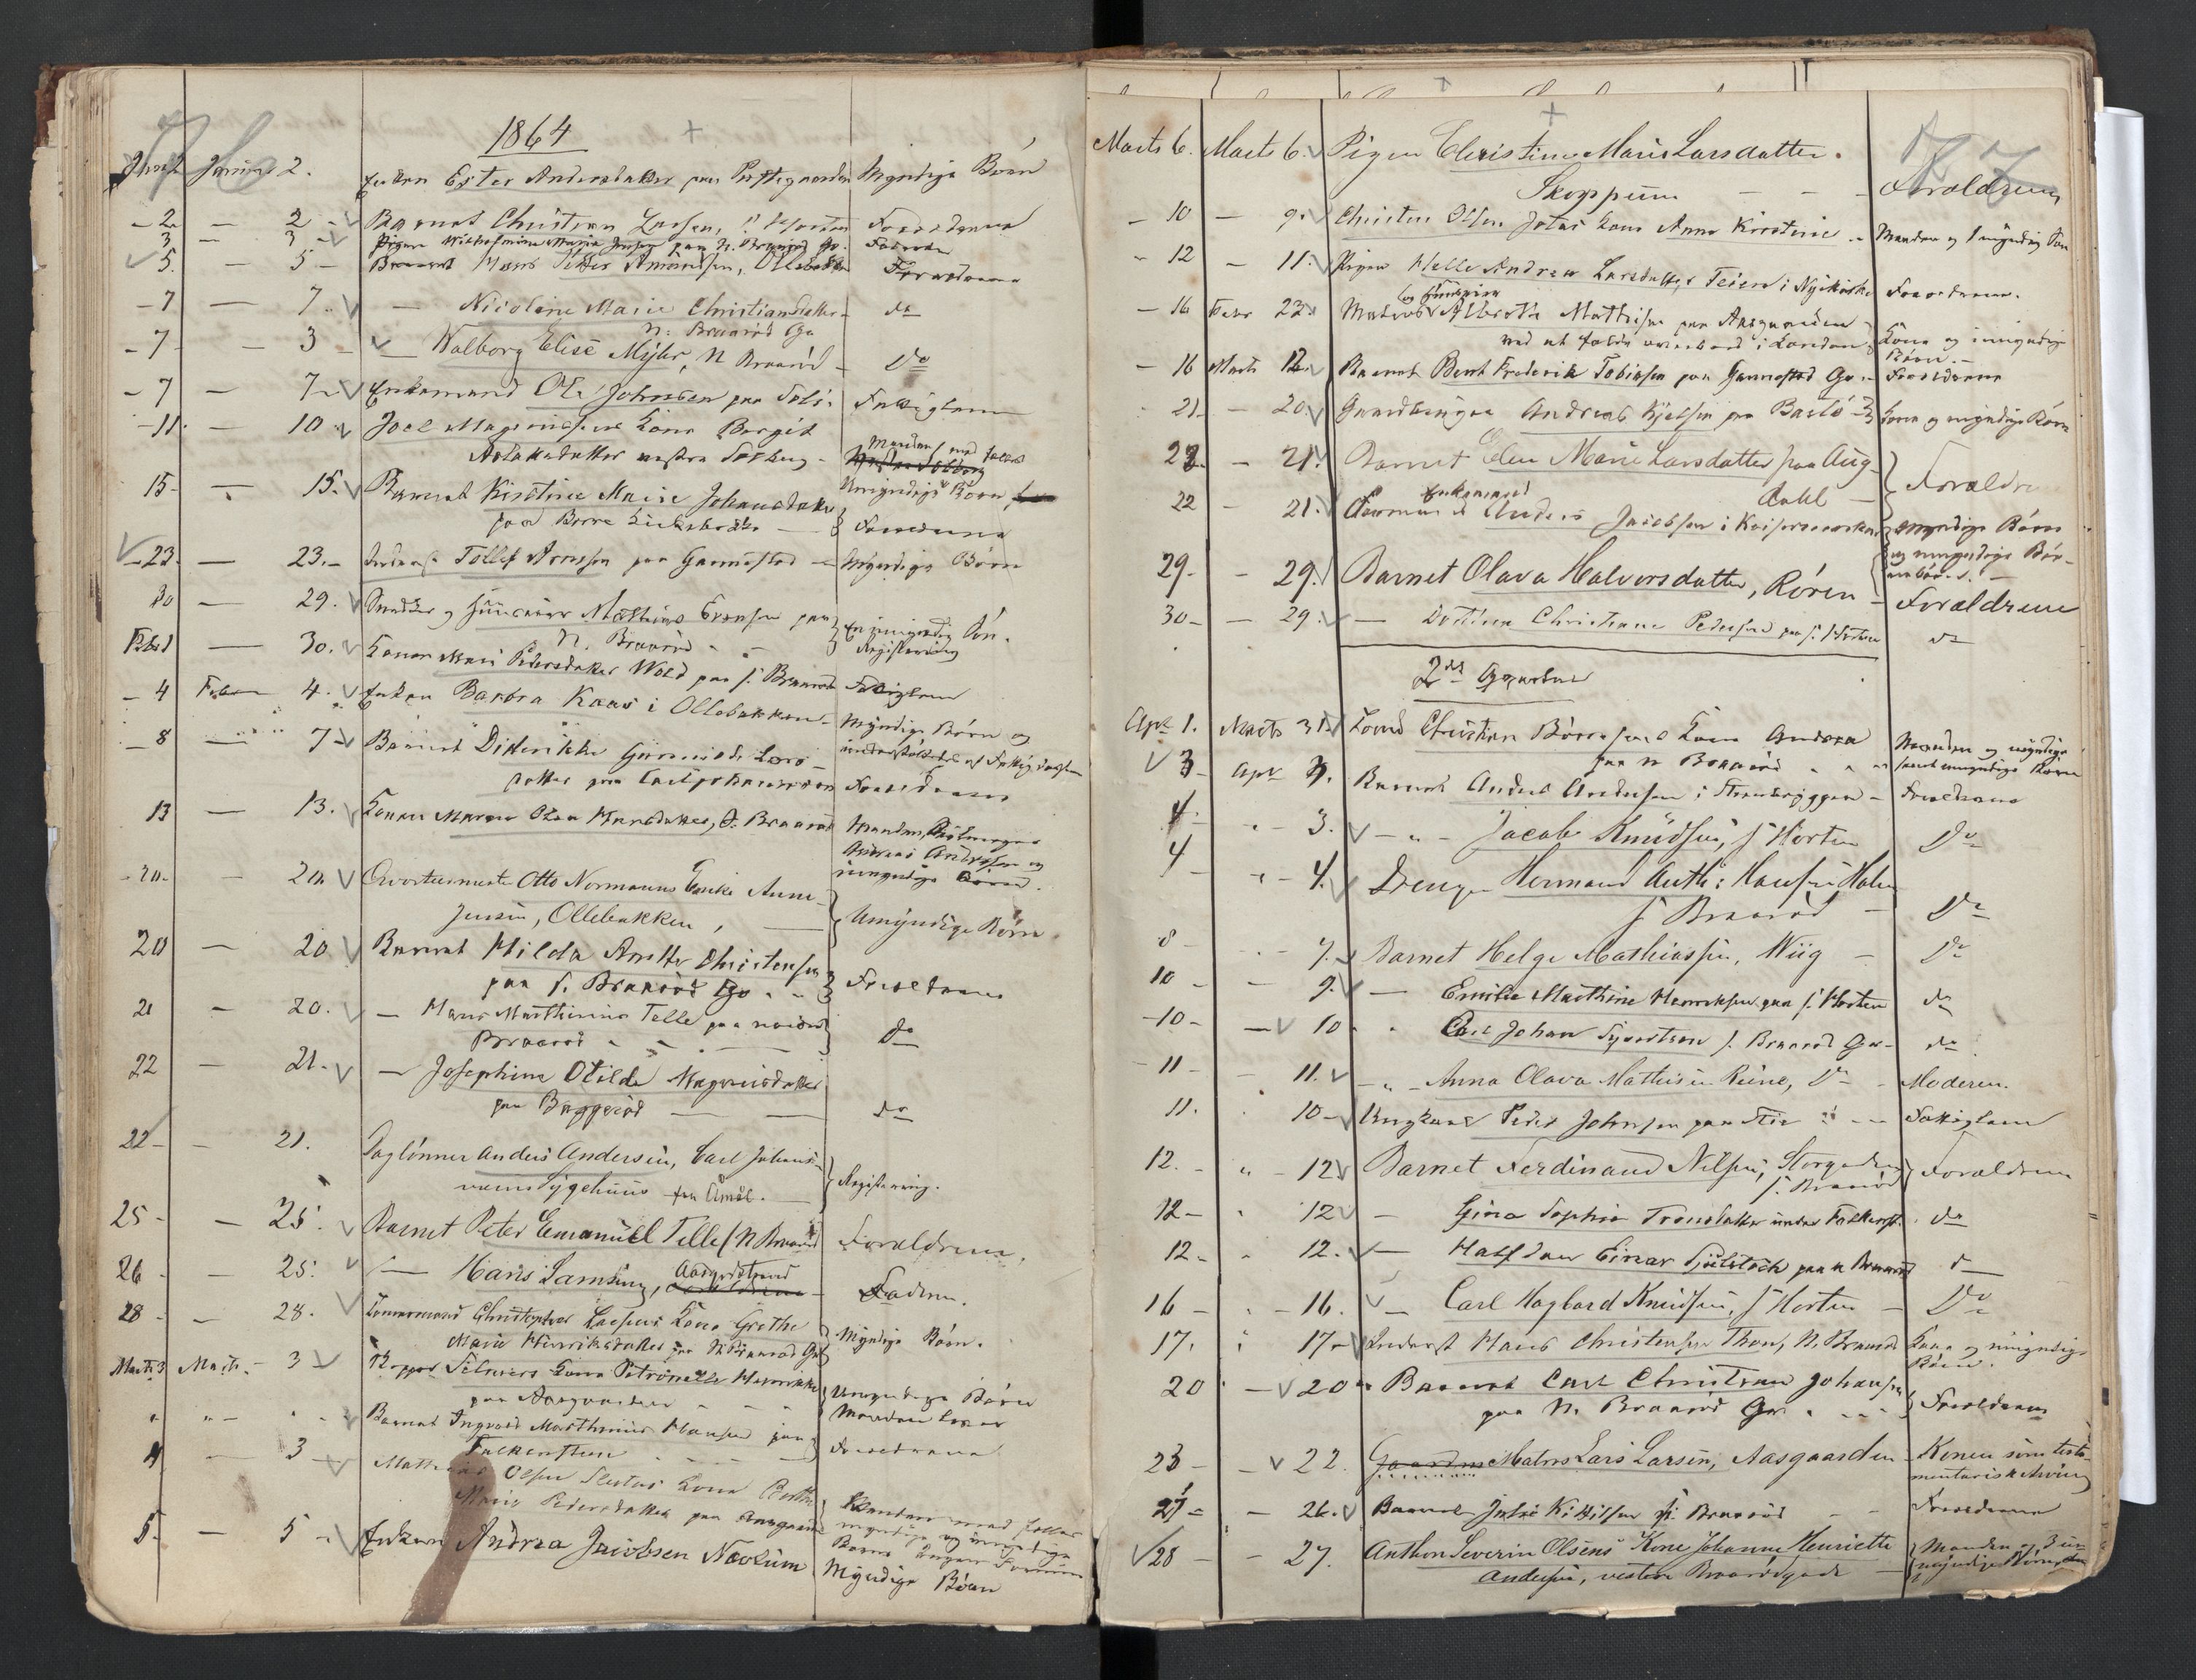 76
1864
Januar 2. Enken Ester Andersdatter paa Prestegaarden Myndige Børn
- 2 - 2 - Barnet Christian Larsen, S. Horten Forældrene
3 - 3 - Pigen Wilhelmine Maria Jensen paa N. Braarød Go. Faderen
5. - 5 - Barnet Hans Petter Amundsen, Ollebakken Forældrene
- 7 - 7. - Nicoline Marie Christiansdatter do
N. Braarød Go
- 7 - 3 - Walborg Elise Myhr, N Braarød - Do
- 7 - 7 - Enkemand Ole Johnsen paa Fattiglem
- 11. - 10 Joel Magnussens Kone Bergit
Aslaksdatter vestre Sørbye Manden med fælles
Umyndige Børn
15 - 15. Barnet Kirstine Marie Johansdatter
paa Borre Forældrene
23. - 23. - Inderst Tollef Arnesen paa Gannestad - Myndige Børn
30 - 29. Snedker og Huuseier Mathias Evensen paa En umyndig Søn.
N. Braarød Registrering
Febr 1 - 30. Konen Mari Pedersdatter Wold paa S. Braarød Fattiglem
- 4 Februar 4. Enken Barbra Kaas i Ollebakken - Myndige Børn og
understøttedes af Fattigkassen
- 8 - 7 - Barnet Diderikke Gunnilde Lars-
datter paa Forældrene
13 - 13. Konen Maren Olea Hansdatter, S. Braarød Manden,
Andreas Andersen og
umyndige Børn.
- 20. - 20. Qvarteermester Otto Normanns Enke Anne
Jensen, Ollebakken, Umyndige Børn.
20 - 20 Barnet Hilda Anette Christensen
paa S. Braarød Go Forældrene
21 - 20. - Hans Marthinius Telle paa nordre
Braarød do
22 - 21. - Josephine Otilde Magnusdatter
paa Baggerød do
22 - 21. Daglønner Anders Andersen, Carl Johans-
værns Sygehuus fra Åmål. Registrering.
25 - 25. Barnet Peter Emanuel Telle N Braarød Forældrene.
26 - 25. - Hans Lamsing, Aasgaardstrand Faderen.
28 - 28. Tømmermand Christopher Larsens Kone Grethe
Marie Henriksdatter paa N Braarød Go Myndige Børn.
Marts 3 Marts - 3 Skipper Selmers Kone Petronelle Henrikke
paa Aasgaarden Umyndige Børn
Manden lever
" " - " Barnet Ingvald Marthinius Hansen paa
Falkensten Forældrene
4 - 3 Mathias Olsen Sletas Kone Berthe
Marie Pedersdatter paa Aasgaarden Manden med fælles
myndige og umyndige
Børn
5. - 5 - Enken Andrea Jacobsen Nøvlum Myndige Børn
77
Marts 6. Marts 6. Pigen Christine Marie Larsdatter.
Skoppum - - - Forældrene
- 10 - 9. Christen Olsen Jotas Kone Anne Kirstine - Manden og 1 myndig Søn
- 12 - 11. Pigen Helle Andrea Larsdatter Teien i Nykirke Forældrene.
- 16 Febr 23. Matros og Huuseier Albreth Mathisen paa Aasgaarden
ved at falde overbord i London Kone og umyndige
Børn. -
- 16 Marts 12. Barnet Bent Frederik Tobiasen paa Gannestad Go - Forældrene
21 - 20. Gaardbruger Andreas Kjelsen paa Bastø Kone og myndige Børn
22. - 21. Barnet Elen Marie Larsdatter paa Aug-
dahl - Forældrene
22 - 21. Formand Enkemand Anders Jacobsen i Keisemarken Myndige Børn
og umyndige Bør-
nebørn. -
29. - 29. Barnet Olava Halvorsdatter, Røren - Forældrene
30 - - 29. - Dorthea Christiane Pedersen paa S. Horten do
2det Qvartal
Apr 1. Marts 31 Lods Christian Børresens Kone Andrea
paa N Braarød Manden og myndige
samt umyndige Børn
3 - Apr 3. Barnet Anders Andersen i Steenbryggen - Forældrene
4. - 3. - " - Jacob Knudsen, S Horten Do
4 - - 4. Drengen Hermand Anth: Hansen Holm
S Braarød - Do
8 - - 7. Barnet Helge Mathiassen, Wiig - Do
10 - - 9. - Emilie Mathine Henriksen paa S. Horten do
- 10 - - 10 " Carl Johan Syvertsen S. Braarød Go - do
- 11 - - 11. - " - Anna Olava Mathisen Reine, Do - Moderen.
11. . 10 - Ungkarl Peder Johnsen paa - - Fattiglem
12. - " - 12 Barnet Ferdinand Nilsen, Storgaden
S. Braarød Forældrene
12 - . 12 - Gina Sophie Tronsdatter under Falkenst. do
12 - " 12. - Halfdan Einar Sjulstock paa N Braarød do
16 - . - 16. - Carl Hagbard Knudsen, S Horten - Do
17. " 17 - Inderst Hans Christensen Thon, N. Braarød Kone og umyndige
Børn.
20 - 20 Barnet Carl Christian Johansen
paa N. Braarød Go. Forældrene
23 - - 22. Matros Lars Larsen, Aasgaarden - Konen som testa-
mentarisk Arving
27 - - 26. Barnet Julie Kittilsen S. Braarød Forældrene
28 - - 27. Anthon Severin Olsens Kone Johanne Henriette
Andersen, vestre Braarødgade Manden og 3 u-
myndige Børn